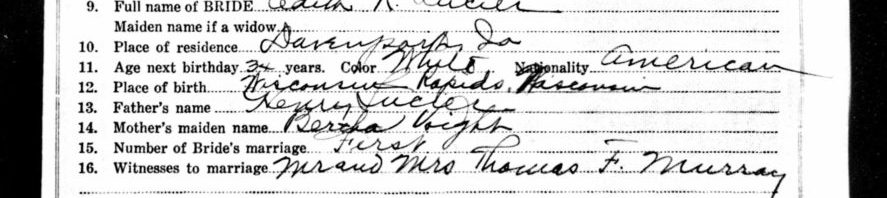 9. Full name of BRIDE Edith R. Lucier
Maiden name if a widow
10. Place of residence Davenport, Io
11. Age next birthday 24 years. Color White Nationality American
12. Place of birth Wisconsin Rapids, Wisconsin
13. Father's name Henry Lucier
14. Mother's maiden name Bertha Voight
15. Number of Bride's marriage First
16. Witnesses to marriage Mr and Mrs Thomas F. Murray